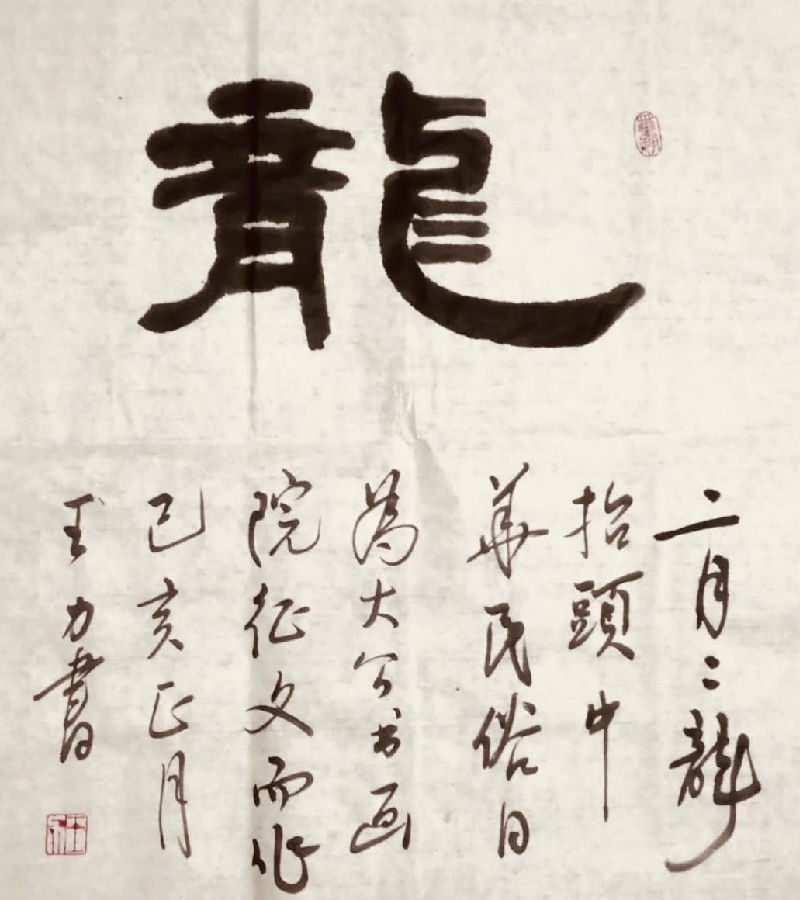 龍
二月二龍
抬頭中
華民俗日
為大公书画
院征文而作
己亥正月
王力書